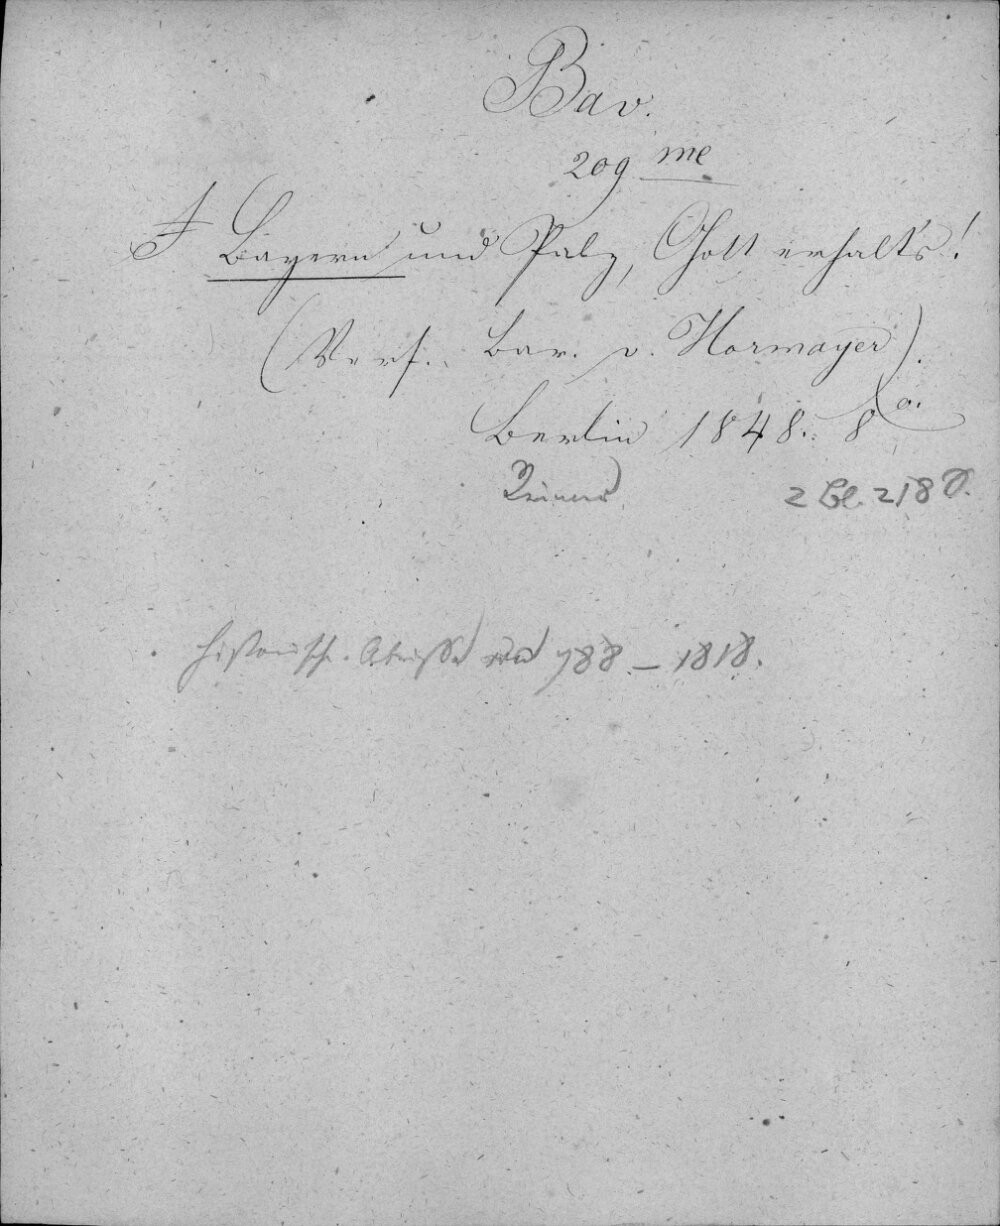 Bav.
209 me
Bayern und Palz, Gott erhalt's!
(Verf. Bar. v. Hormayer).
Berlin 1848. 8o.
2 Bl. 218 S.
Historische Abrisse von 788 – 1818.